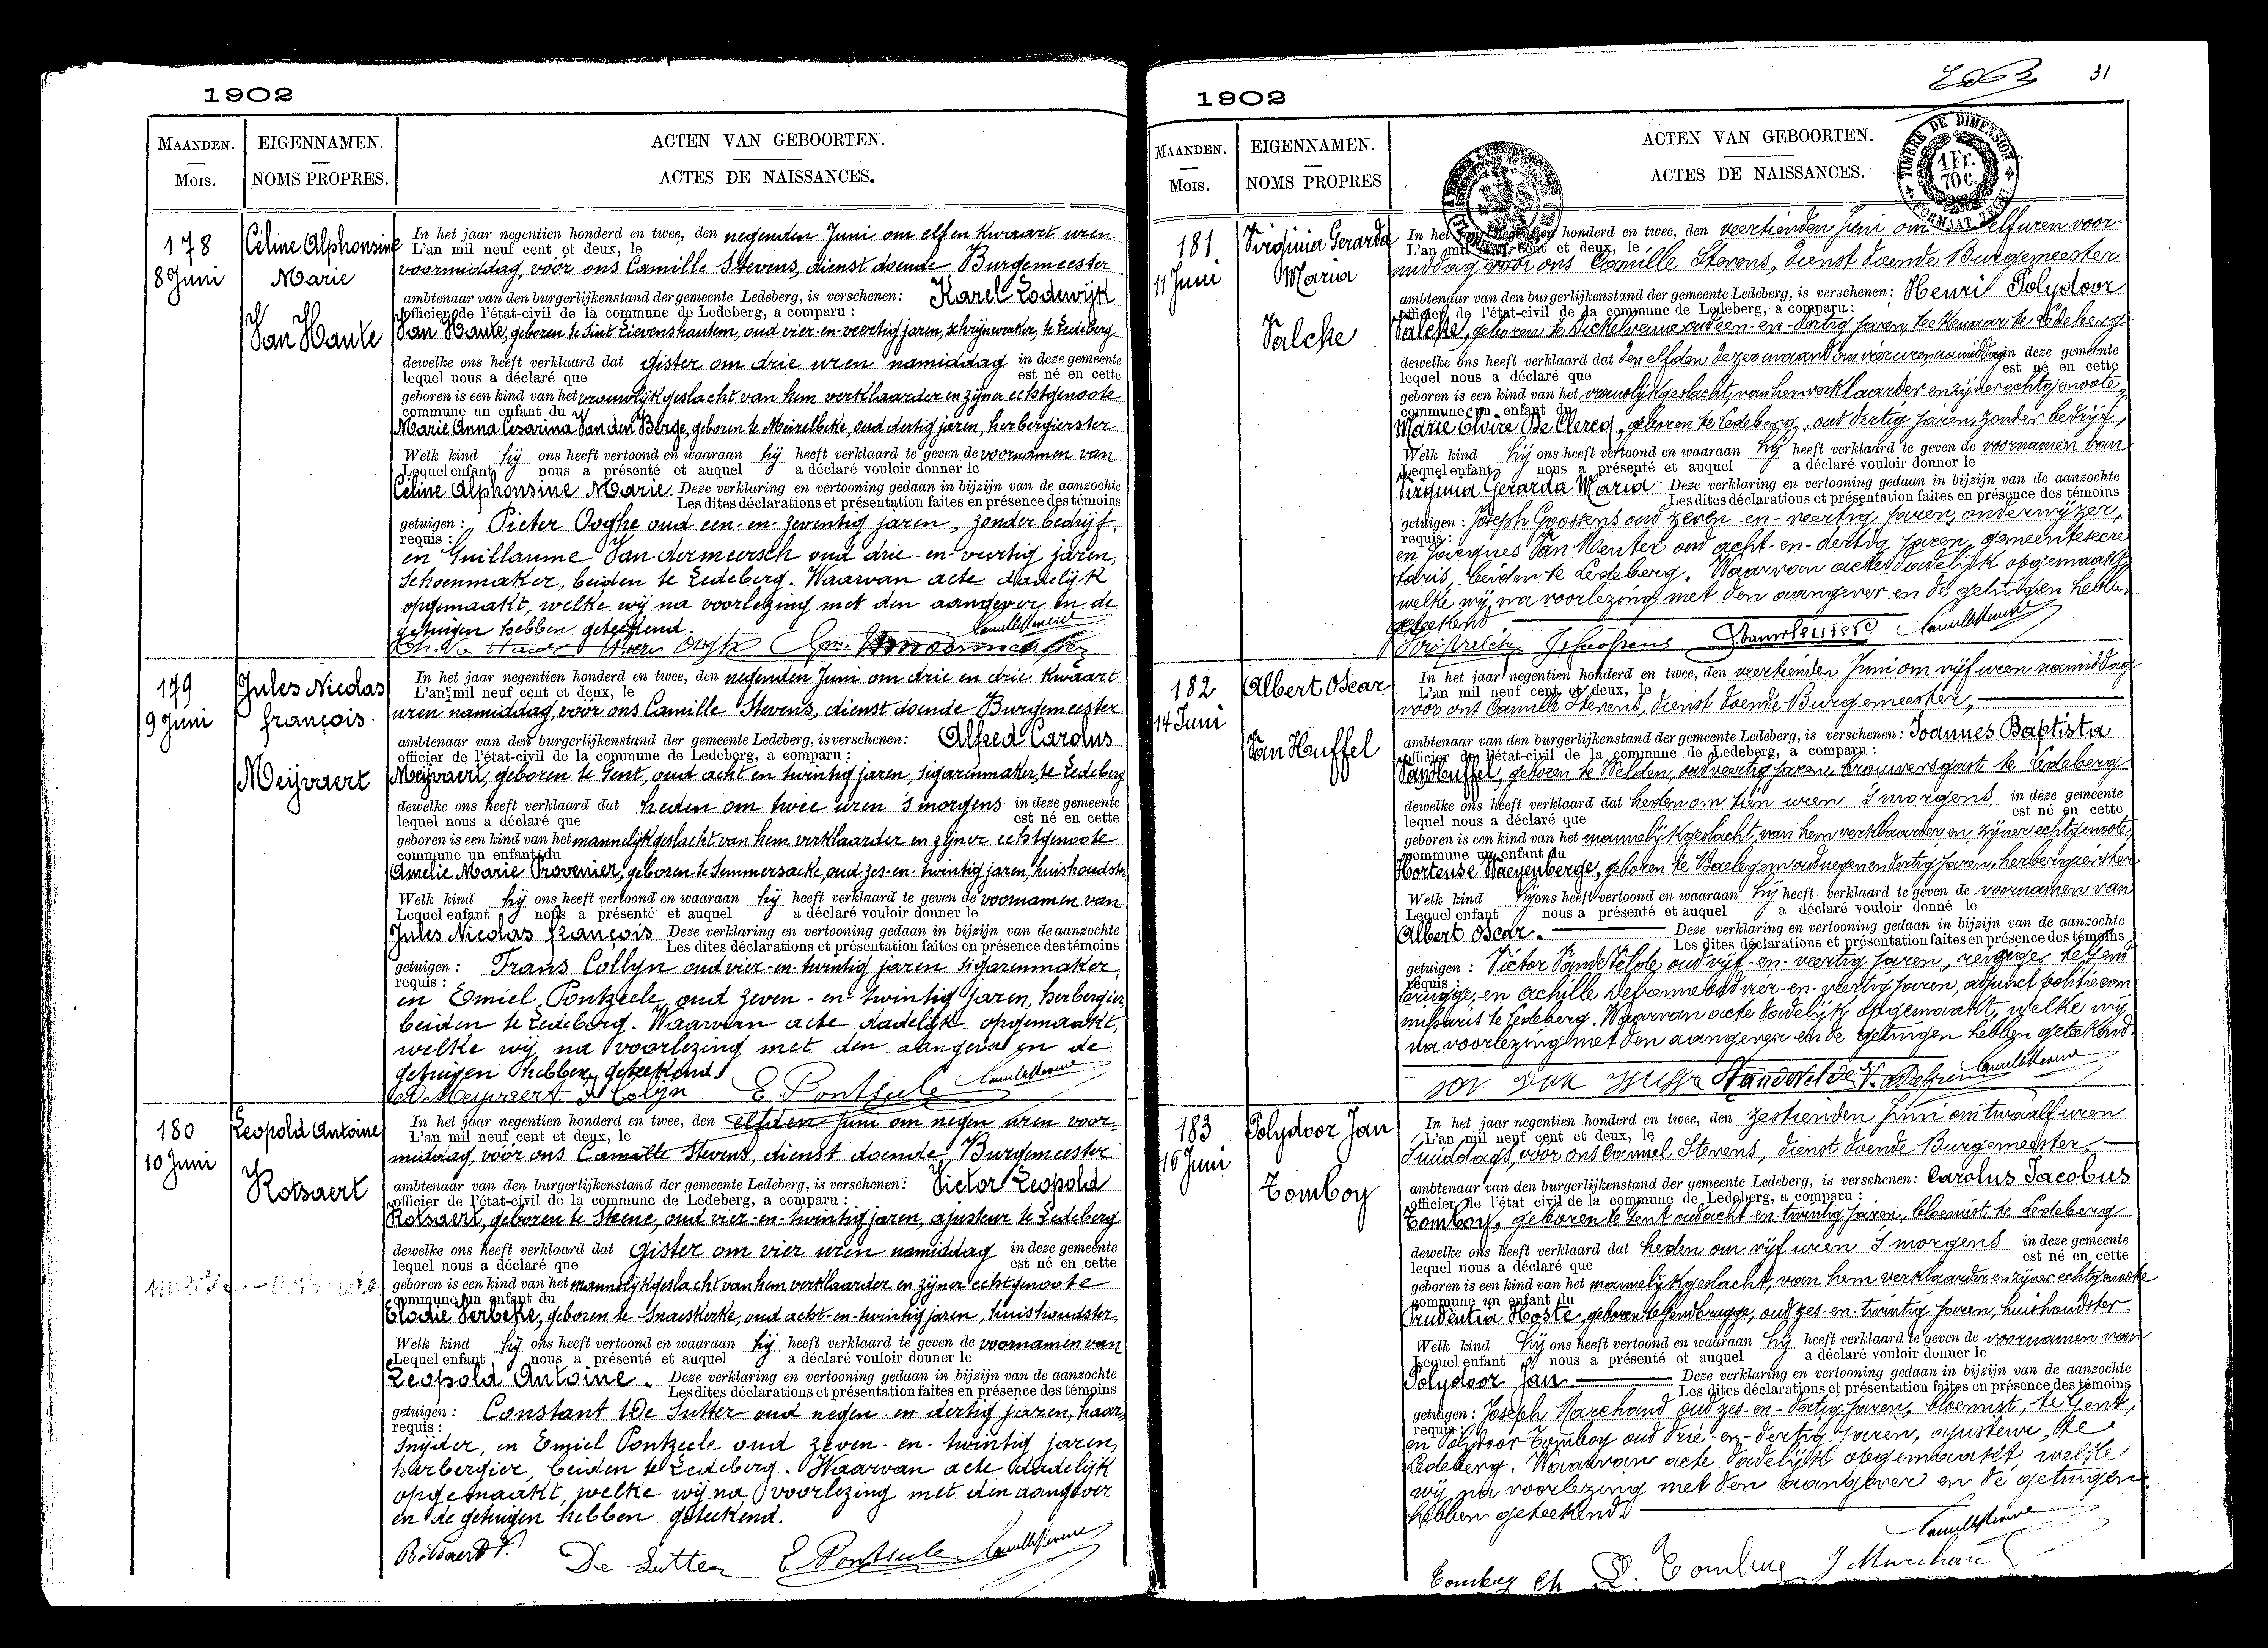 1902
MAANDEN. EIGENNAMEN. ACTEN VAN GEBOORTEN.
MOIS. NOMS PROPRES. ACTES DE NAISSANCES.
178
8 Juni
Céline Alphonsine
Marie
Van Haute
In het jaar negentien honderd en twee, den negenden Juni om elf en kwaart uren
L'an mil neuf cent et deux, le
voormiddag, vóór ons Camille Stevens, dienst doende Burgemeester
ambtenaar van den burgerlijkenstand der gemeente Ledeberg, is verschenen: Karel Lodewijk
officier de l'état-civil de la commune de Ledeberg, a comparu :
Van Haute, geboren te Sint Lievenshautem, oud vier-en-veertig jaren, schrijnwerker, te Ledeberg
dewelke ons heeft verklaard dat gister om drie uren namiddag in deze gemeente
lequel nous a déclaré que est né en cette
geboren is een kind van het vrouwlijkgeslacht van hem verklaarder en zijner echtgenoote
commune un enfant du
Marie Anna Cesarina Van den Berge, geboren te Meirelbeke, oud dertig jaren, herbergierster
Welk kind hij ons heeft vertoond en waaraan hij heeft verklaard te geven de voornamen van
Lequel enfant nous a présenté et auquel a déclaré vouloir donner le
Céline Alphonsine Marie. Deze verklaring en vertooning gedaan in bijzijn van de aanzochte
Les dites déclarations et présentation faites en présence des témoins
getuigen : Pieter Ooghe oud een-en-zeventig jaren, zonder bedrijf,
requis :
en Guillaume Van dermeersch oud drie-en-veertig jaren,
schoenmaker, beiden te Ledeberg. Waarvan acte dadelijk
opgemaakt, welke wij na voorlezing met den aangever en de
getuigen hebben geteekend.
Camille Stevens
179
9 Juni
Jules Nicolas
françois
Meijvaert
In het jaar negentien honderd en twee, den negenden Juni om drie en drie kwaart
L'an mil neuf cent et deux, le
uren namiddag, vóór ons Camille Stevens, dienst doende Burgemeester
ambtenaar van den burgerlijkenstand der gemeente Ledeberg, is verschenen: Alfred Carolus
officier de l'état-civil de la commune de Ledeberg, a comparu :
Meijvaert, geboren te Gent, oud acht en twintig jaren, sigarenmaker, te Ledeberg
dewelke ons heeft verklaard dat heden om twee uren 's morgens in deze gemeente
lequel nous a déclaré que est né en cette
geboren is een kind van het mannelijkgeslacht van hem verklaarder en zijner echtgenoote
commune un enfant du
Amelie Marie Provenier, geboren te Semmersacke, oud zes-en-twintig jaren, huishoudster
Welk kind hij ons heeft vertoond en waaraan hij heeft verklaard te geven de voornamen van
Lequel enfant nous a présenté et auquel a déclaré vouloir donner le
Jules Nicolas françois Deze verklaring en vertooning gedaan in bijzijn van de aanzochte
Les dites déclarations et présentation faites en présence des témoins
getuigen : Frans Collyn oud vier-en-twintig jaren sigarenmaker,
requis :
en Emiel Pontzeele, oud zeven-en-twintig jaren, herbergier,
beiden te Ledeberg. Waarvan acte dadelijk opgemaakt,
welke wij na voorlezing met den aangever en de
getuigen hebben geteekend.
A. Meijvaert F. Colyn E. Pontzeele Camille Stevens
180
10 Juni
Leopold Antoine
Rotsaert
In het jaar negentien honderd en twee, den elfden Juni om negen uren voor-
L'an mil neuf cent et deux, le
middag, vóór ons Camille Stevens, dienst doende Burgemeester
ambtenaar van den burgerlijkenstand der gemeente Ledeberg, is verschenen: Victor Leopold
officier de l'état-civil de la commune de Ledeberg, a comparu :
Rotsaert, geboren te Steene, oud vier-en-twintig jaren, ajusteur te Ledeberg
dewelke ons heeft verklaard dat gister om vier uren namiddag in deze gemeente
lequel nous a déclaré que est né en cette
geboren is een kind van het mannelijkgeslacht van hem verklaarder en zijner echtgenoote
commune un enfant du
Elodie Verbeke, geboren te Snaeskerke, oud acht-en-twintig jaren, huishoudster,
Welk kind hij ons heeft vertoond en waaraan hij heeft verklaard te geven de voornamen van
Lequel enfant nous a présenté et auquel a déclaré vouloir donner le
Leopold Antoine. Deze verklaring en vertooning gedaan in bijzijn van de aanzochte
Les dites déclarations et présentation faites en présence des témoins
getuigen : Constant De Sutter oud negen en dertig jaren, haar-
requis :
snijder, en Emiel Pontzeele oud zeven-en-twintig jaren,
herbergier, beiden te Ledeberg. Waarvan acte dadelijk
opgemaakt, welke wij na voorlezing met den aangever
en de getuigen hebben geteekend.
Rotsaert V. De Sutter E. Pontzeele Camille Stevens
1902
31
MAANDEN. EIGENNAMEN. ACTEN VAN GEBOORTEN.
MOIS. NOMS PROPRES ACTES DE NAISSANCES.
TIMBRE DE DIMENSION
1 Fr.
70 C.
FORMAAT ZEGEL
181
11 Juni
Virginia Gerarda
Maria
Valcke
In het jaar negentien honderd en twee, den veertienden Juni om elf uren voor-
L'an mil neuf cent et deux, le
middag voor ons Camille Stevens, dienst doende Burgemeester
ambtenaar van den burgerlijkenstand der gemeente Ledeberg, is verschenen: Henri Polydoor
officier de l'état-civil de la commune de Ledeberg, a comparu :
Valcke, geboren te Dickelvenne oud een-en-dertig jaren, teekenaar te Ledeberg
dewelke ons heeft verklaard dat den elfden dezer maand om vier uren namiddag in deze gemeente
lequel nous a déclaré que est né en cette
geboren is een kind van het vrouwlijkgeslacht, van hem verklaarder en zijner echtgenoote,
commune un enfant du
Marie Elvire De Clercq, geboren te Ledeberg, oud dertig jaren, zonder bedrijf,
Welk kind hij ons heeft vertoond en waaraan hij heeft verklaard te geven de voornamen van
Lequel enfant nous a présenté et auquel a déclaré vouloir donner le
Virginia Gerarda Maria Deze verklaring en vertooning gedaan in bijzijn van de aanzochte
Les dites déclarations et présentation faites en présence des témoins
getuigen : Joseph Goossens oud zeven-en-veertig jaren, onderwijzer,
requis :
en Jacques Van Wenter oud acht-en-dertig jaren, gemeentesecre
taris, beiden te Ledeberg. Waarvan acte dadelijk opgemaakt,
welke wij na voorlezing met den aangever en de getuigen hebben
geteekend
Camille Stevens
182
14 Juni
Albert Oscar
Van Huffel
In het jaar negentien honderd en twee, den veertienden Juni om vijf uren namiddag
L'an mil neuf cent et deux, le
voor ons Camille Stevens, dienst doende Burgemeester,
ambtenaar van den burgerlijkenstand der gemeente Ledeberg, is verschenen: Joannes Baptista
officier de l'état-civil de la commune de Ledeberg, a comparu :
Van Huffel, geboren te Welden, oud veertig jaren, brouwersgast te Ledeberg
dewelke ons heeft verklaard dat heden om tien uren 's morgens in deze gemeente
lequel nous a déclaré que est né en cette
geboren is een kind van het mannelijkgeslacht, van hem verklaarder en zijner echtgenoote,
commune un enfant du
Hortense Waeyenberge, geboren te Baelegem oud negen en dertig jaren, herbergierster
Welk kind hij ons heeft vertoond en waaraan hij heeft verklaard te geven de voornamen van
Lequel enfant nous a présenté et auquel a déclaré vouloir donné le
Albert Oscar. Deze verklaring en vertooning gedaan in bijzijn van de aanzochte
Les dites déclarations et présentation faites en présence des témoins
getuigen : Victor Van de Velde, oud vijf-en-veertig jaren, reiziger te Gend
requis :
brugge, en Achille Defranne oud vier-en-veertig jaren, adjunct politiecom
missaris te Ledeberg. Waarvan acte dadelijk opgemaakt, welke wij
na voorlezing met den aangever en de getuigen hebben geteekend.
Camille Stevens
183
16 Juni
Polydoor Jan
Tomboy
In het jaar negentien honderd en twee, den zestienden Juni om twaalf uren
L'an mil neuf cent et deux, le
's middags, voor ons Camiel Stevens, dienst doende Burgemeester,
ambtenaar van den burgerlijkenstand der gemeente Ledeberg, is verschenen: Carolus Jacobus
officier de l'état civil de la commune de Ledeberg, a comparu :
Tomboy, geboren te Gent oud acht-en-twintig jaren, bloemist te Ledeberg
dewelke ons heeft verklaard dat heden om vijf uren 's morgens in deze gemeente
lequel nous a déclaré que est né en cette
geboren is een kind van het mannelijkgeslacht, van hem verklaarder en zijner echtgenoote
commune un enfant du
Prudentia Hoste, geboren te Gendbrugge, oud zes-en-twintig jaren, huishoudster.
Welk kind hij ons heeft vertoond en waaraan hij heeft verklaard te geven de voornamen van
Lequel enfant nous a présenté et auquel a déclaré vouloir donner le
Polydoor Jan. Deze verklaring en vertooning gedaan in bijzijn van de aanzochte
Les dites déclarations et présentation faites en présence des témoins
getuigen : Joseph Marchand oud zes-en-dertig jaren, bloemist, te Gent,
requis :
en Polydoor Tomboy oud drie-en-dertig jaren, ajusteur, te
Ledeberg. Waarvan acte dadelijk opgemaakt, welke
wij na voorlezing met den aangever en de getuigen
hebben geteekend.
Camille Stevens
Tomboy Ch P. Tomboy J Marchand